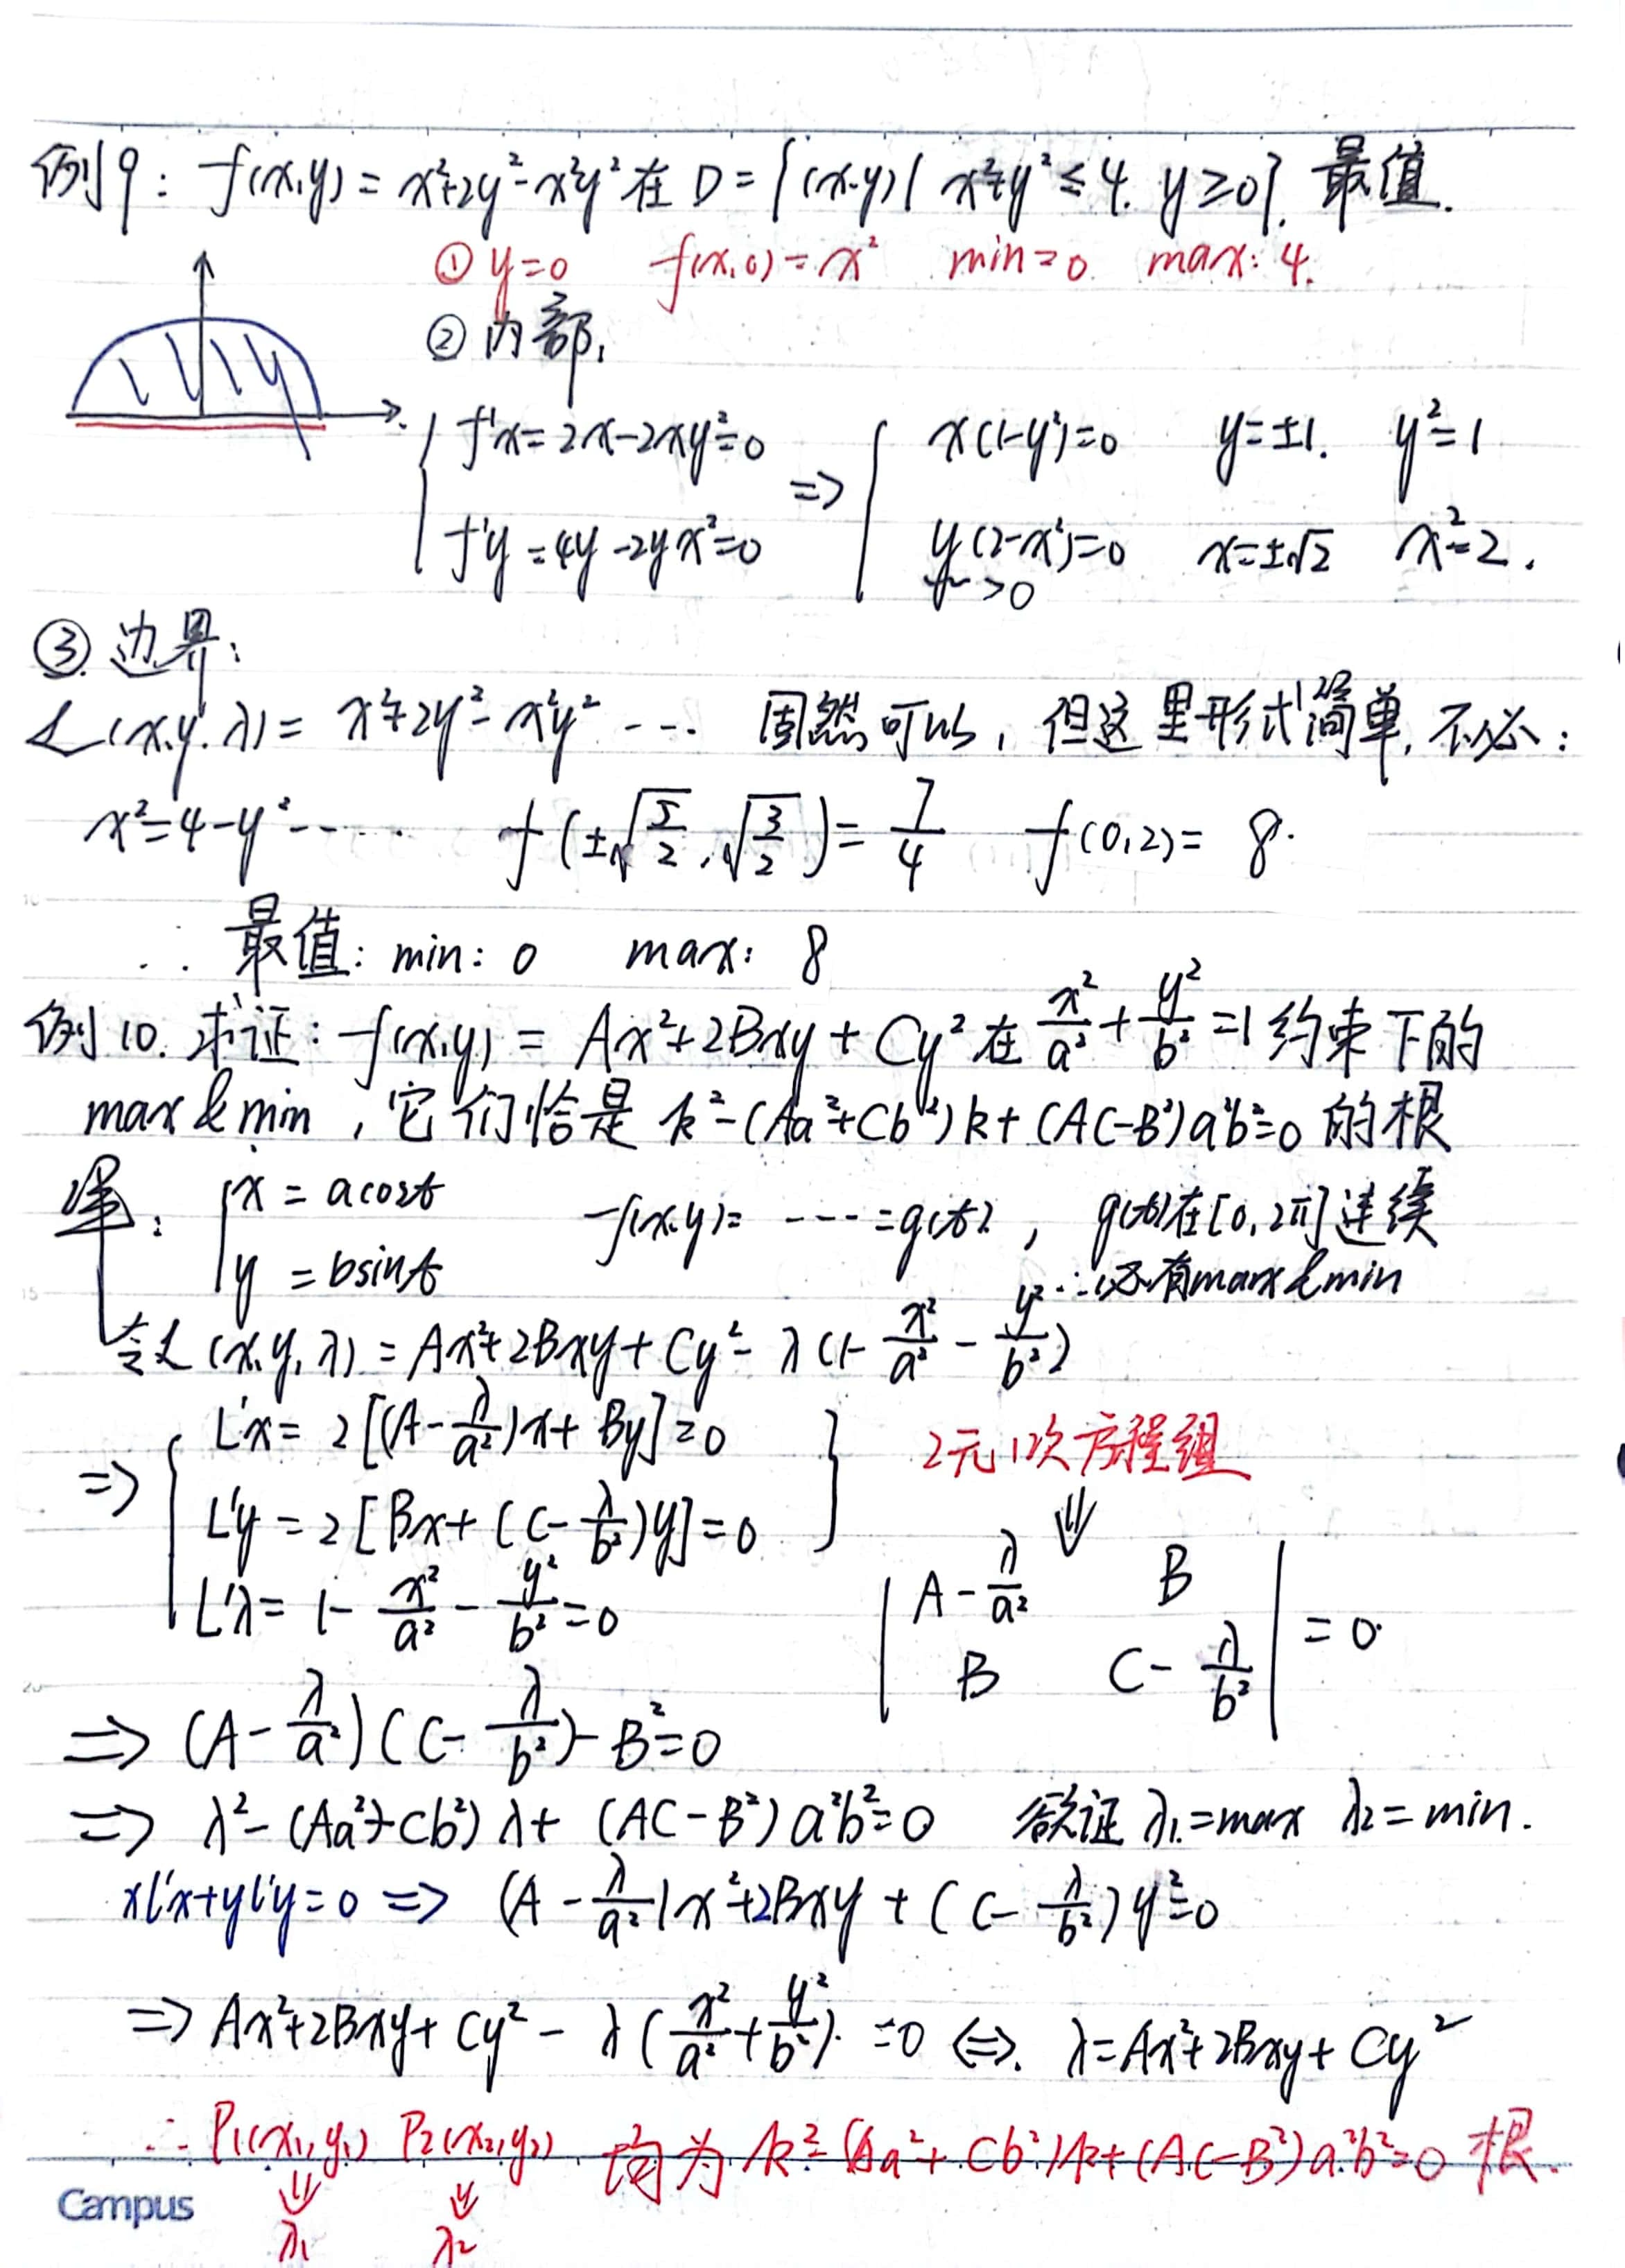 例9: f(x,y) = x²+2y²-x²y² 在 D = {(x,y) | x²+y² ≤ 4, y ≥ 0}, 最值.
① y=0 f(x,0) = x² min=0 max: 4.
② 内部,
{ f'x = 2x-2xy² = 0 => { x(1-y²)=0 y=±1. y²=1
f'y = 4y-2yx² = 0 y(2-x²)=0 x=±√2 x²=2.
y>0
③. 边界:
L(x,y,λ) = x²+2y²-x²y² --- 固然可以, 但这里形式简单, 不必:
x²=4-y² ----- f(±√(5/2), √(3/2)) = 7/4 f(0,2) = 8.
∴ 最值: min: 0 max: 8
例10. 求证: f(x,y) = Ax²+2Bxy+Cy² 在 x²/a² + y²/b² = 1 约束下的
max & min, 它们恰是 k²-(Aa²+Cb²)k+(AC-B²)a²b²=0 的根
解: { x = acost f(x,y) = ---- = g(t), g(t)在[0,2π]连续
y = bsint ∴必有max&min
令L(x,y,λ) = Ax²+2Bxy+Cy² - λ(1- x²/a² - y²/b²)
=> { L'x = 2[(A-λ/a²)x+By] = 0 } 2元1次方程组
L'y = 2[Bx+(C-λ/b²)y] = 0 ⇓
L'λ = 1- x²/a² - y²/b² = 0 | A-λ/a² B |
| B C-λ/b² | = 0.
=> (A-λ/a²)(C-λ/b²)-B²=0
=> λ²-(Aa²+Cb²)λ+(AC-B²)a²b²=0 欲证 λ1=max λ2=min.
xL'x+yL'y=0 => (A-λ/a²)x²+2Bxy+(C-λ/b²)y²=0
=> Ax²+2Bxy+Cy² - λ(x²/a²+y²/b²) = 0 <=>. λ=Ax²+2Bxy+Cy²
∴ P1(x1,y1) P2(x2,y2) 均为 k²-(Aa²+Cb²)k+(AC-B²)a²b²=0 根.
⇓ ⇓
λ1 λ2
Campus